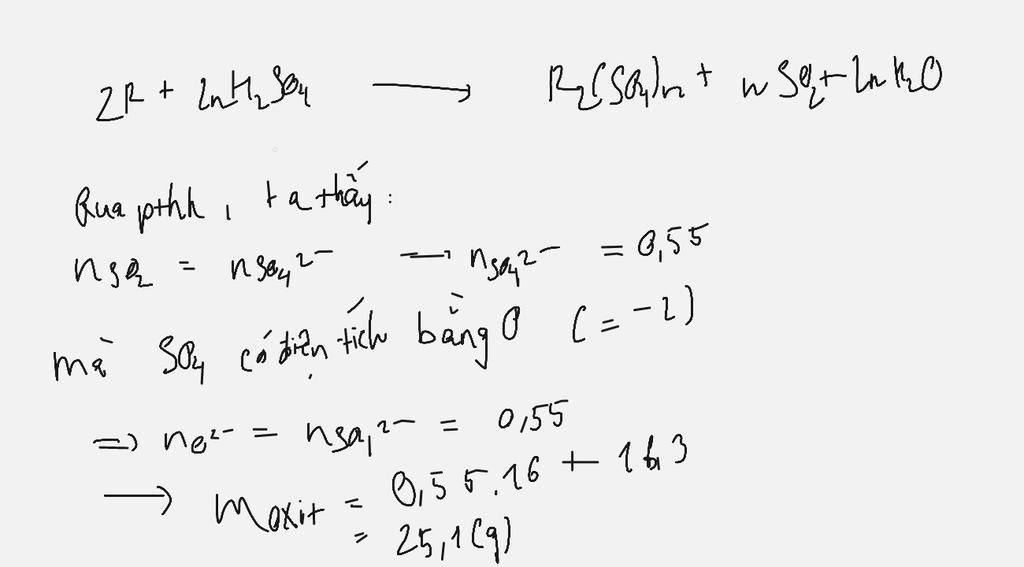 2R + 2nH₂SO₄ → R₂(SO₄)n + nSO₂ + 2nH₂O
Qua pthh, ta thấy:
nSO₂ = nSO₄²⁻ → nSO₄²⁻ = 0,55
mà SO₄ có điện tích bằng O (= -2)
=> nO²⁻ = nSO₄²⁻ = 0,55
→ m oxit = 0,55.16 + 16,3
= 25,1(g)